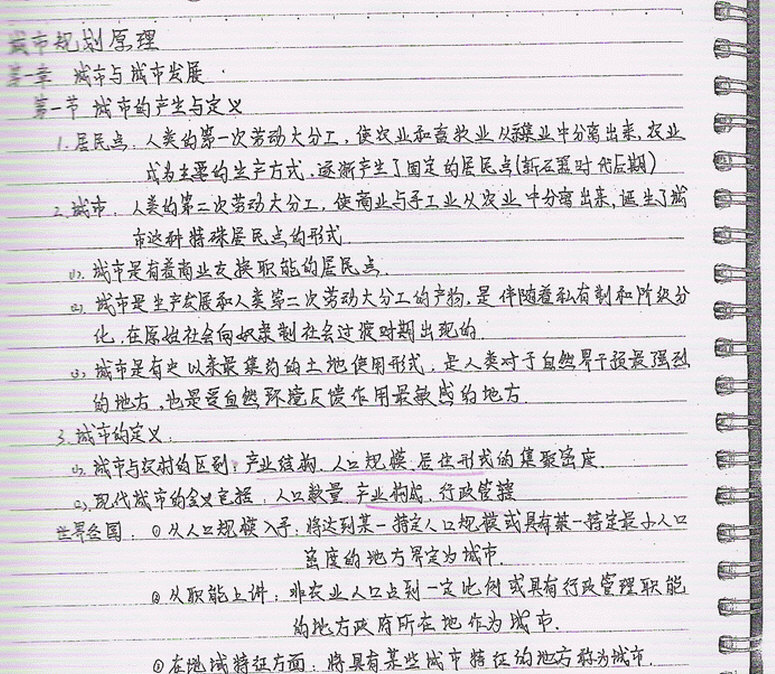 城市规划原理
第一章 城市与城市发展
第一节 城市的产生与定义
1. 居民点：人类的第一次劳动大分工，使农业和畜牧业从采集业中分离出来，农业
成为主要的生产方式，逐渐产生了固定的居民点(新石器时代后期)
2. 城市：人类的第二次劳动大分工，使商业与手工业从农业中分离出来，诞生了城
市这种特殊居民点的形式.
(1). 城市是有着商业交换职能的居民点.
(2). 城市是生产发展和人类第二次劳动大分工的产物，是伴随着私有制和阶级分
化，在原始社会向奴隶制社会过渡时期出现的.
(3). 城市是有史以来最集约的土地使用形式，是人类对于自然界干预最强烈
的地方，也是受自然环境反馈作用最敏感的地方.
3. 城市的定义：
(1). 城市与农村的区别：产业结构、人口规模、居住形式的集聚密度.
(2). 现代城市的含义包括：人口数量、产业构成、行政管辖
世界各国：①从人口规模入手：将达到某一特定人口规模或具有某一特定最小人口
密度的地方界定为城市.
②从职能上讲：非农业人口占到一定比例或具有行政管理职能
的地方政府所在地作为城市.
③在地域特征方面：将具有某些城市特征的地方称为城市.